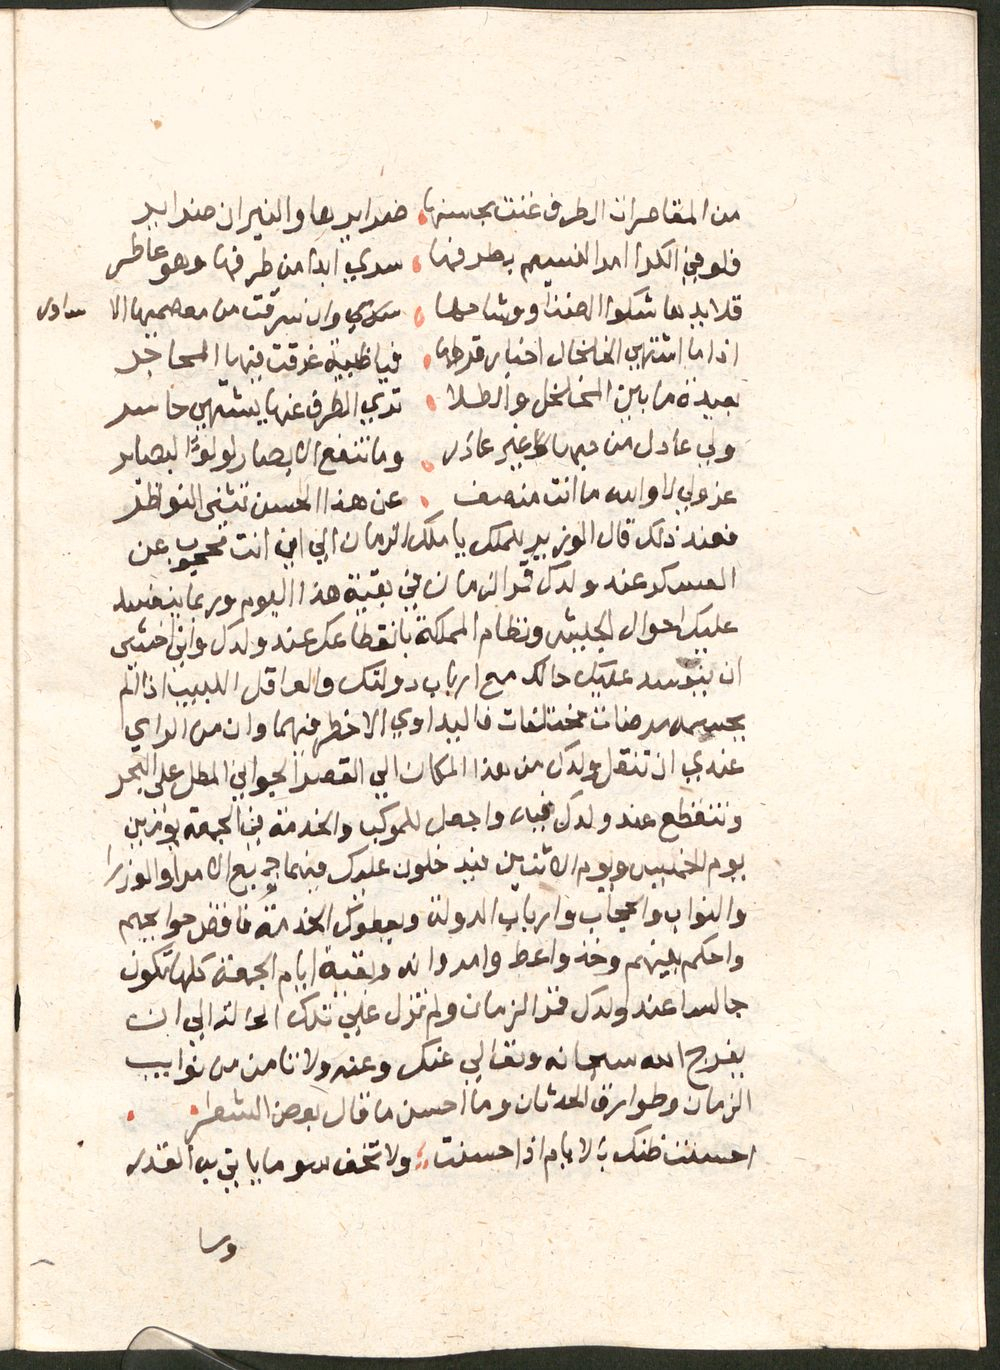 من المقاصرات الطرف غنت بحسنها صراير بها والنيران صراير
فلو في الكرا امر النسيم بطرفها سري ابدا من طرفها وهو عاطر
قلايدها شكوا الضنا ووشاحها سكري وان سرقت من معصميها الا ساور
اذا ما اشتهي الخلخال اخبار قرطها فيا ظبية غرقت فيها المحاجر
بعيدة ما بين المخلخل والطلا تري الطرف عنها يشتهي حاسر
ولي عادل من غير عاذر وما تنفع الابصار لولا البصاير
عزولي لا والله ما انت منصف عن هذا الحسن تثني النواظر
فعند ذلك قال الوزير للملك يا ملك الزمان الي اين انت محجوب عن
العسكر عند ولدك قمر الزمان في بقية هذا اليوم وربما ينفسد
عليك احوال الجيش ونظام المملكة بانقطاعك عند ولدك واني اخشي
ان ينفسد عليك حالك مع ارباب دولتك والعاقل اللبيب اذا الم
بجسمه مرضات مختلفات فاليداوي الاخطر فيهما وان من الراي
عندي ان تنقل ولدك من هذا المكان الي القصر الجواني المطل علي البحر
وتنقطع عند ولدك فيه واجعل للموكب والخدمة في الجمعة يومين
يوم الخميس ويوم الاثنين فيدخلون عليك فيهما جميع الامرا والوزرا
والنواب والحجاب وارباب الدولة ويعطوك الخدمة فاقض حوايجهم
واحكم بينهم وخذ واعط وامر وانه وبقية ايام الجمعة كلها تكون
جالسا عند ولدك قمر الزمان ولم تزل علي تلك الحالة الي ان
يفرج الله سبحانه وتعالي عنك وعنه ولا تامن من نوايب
الزمان وطوارق الحدثان وما احسن ما قال بعض الشعرا
احسنت ظنك بالايام اذا حسنت ولا تخف سوء ما ياتي به القدر
وسا